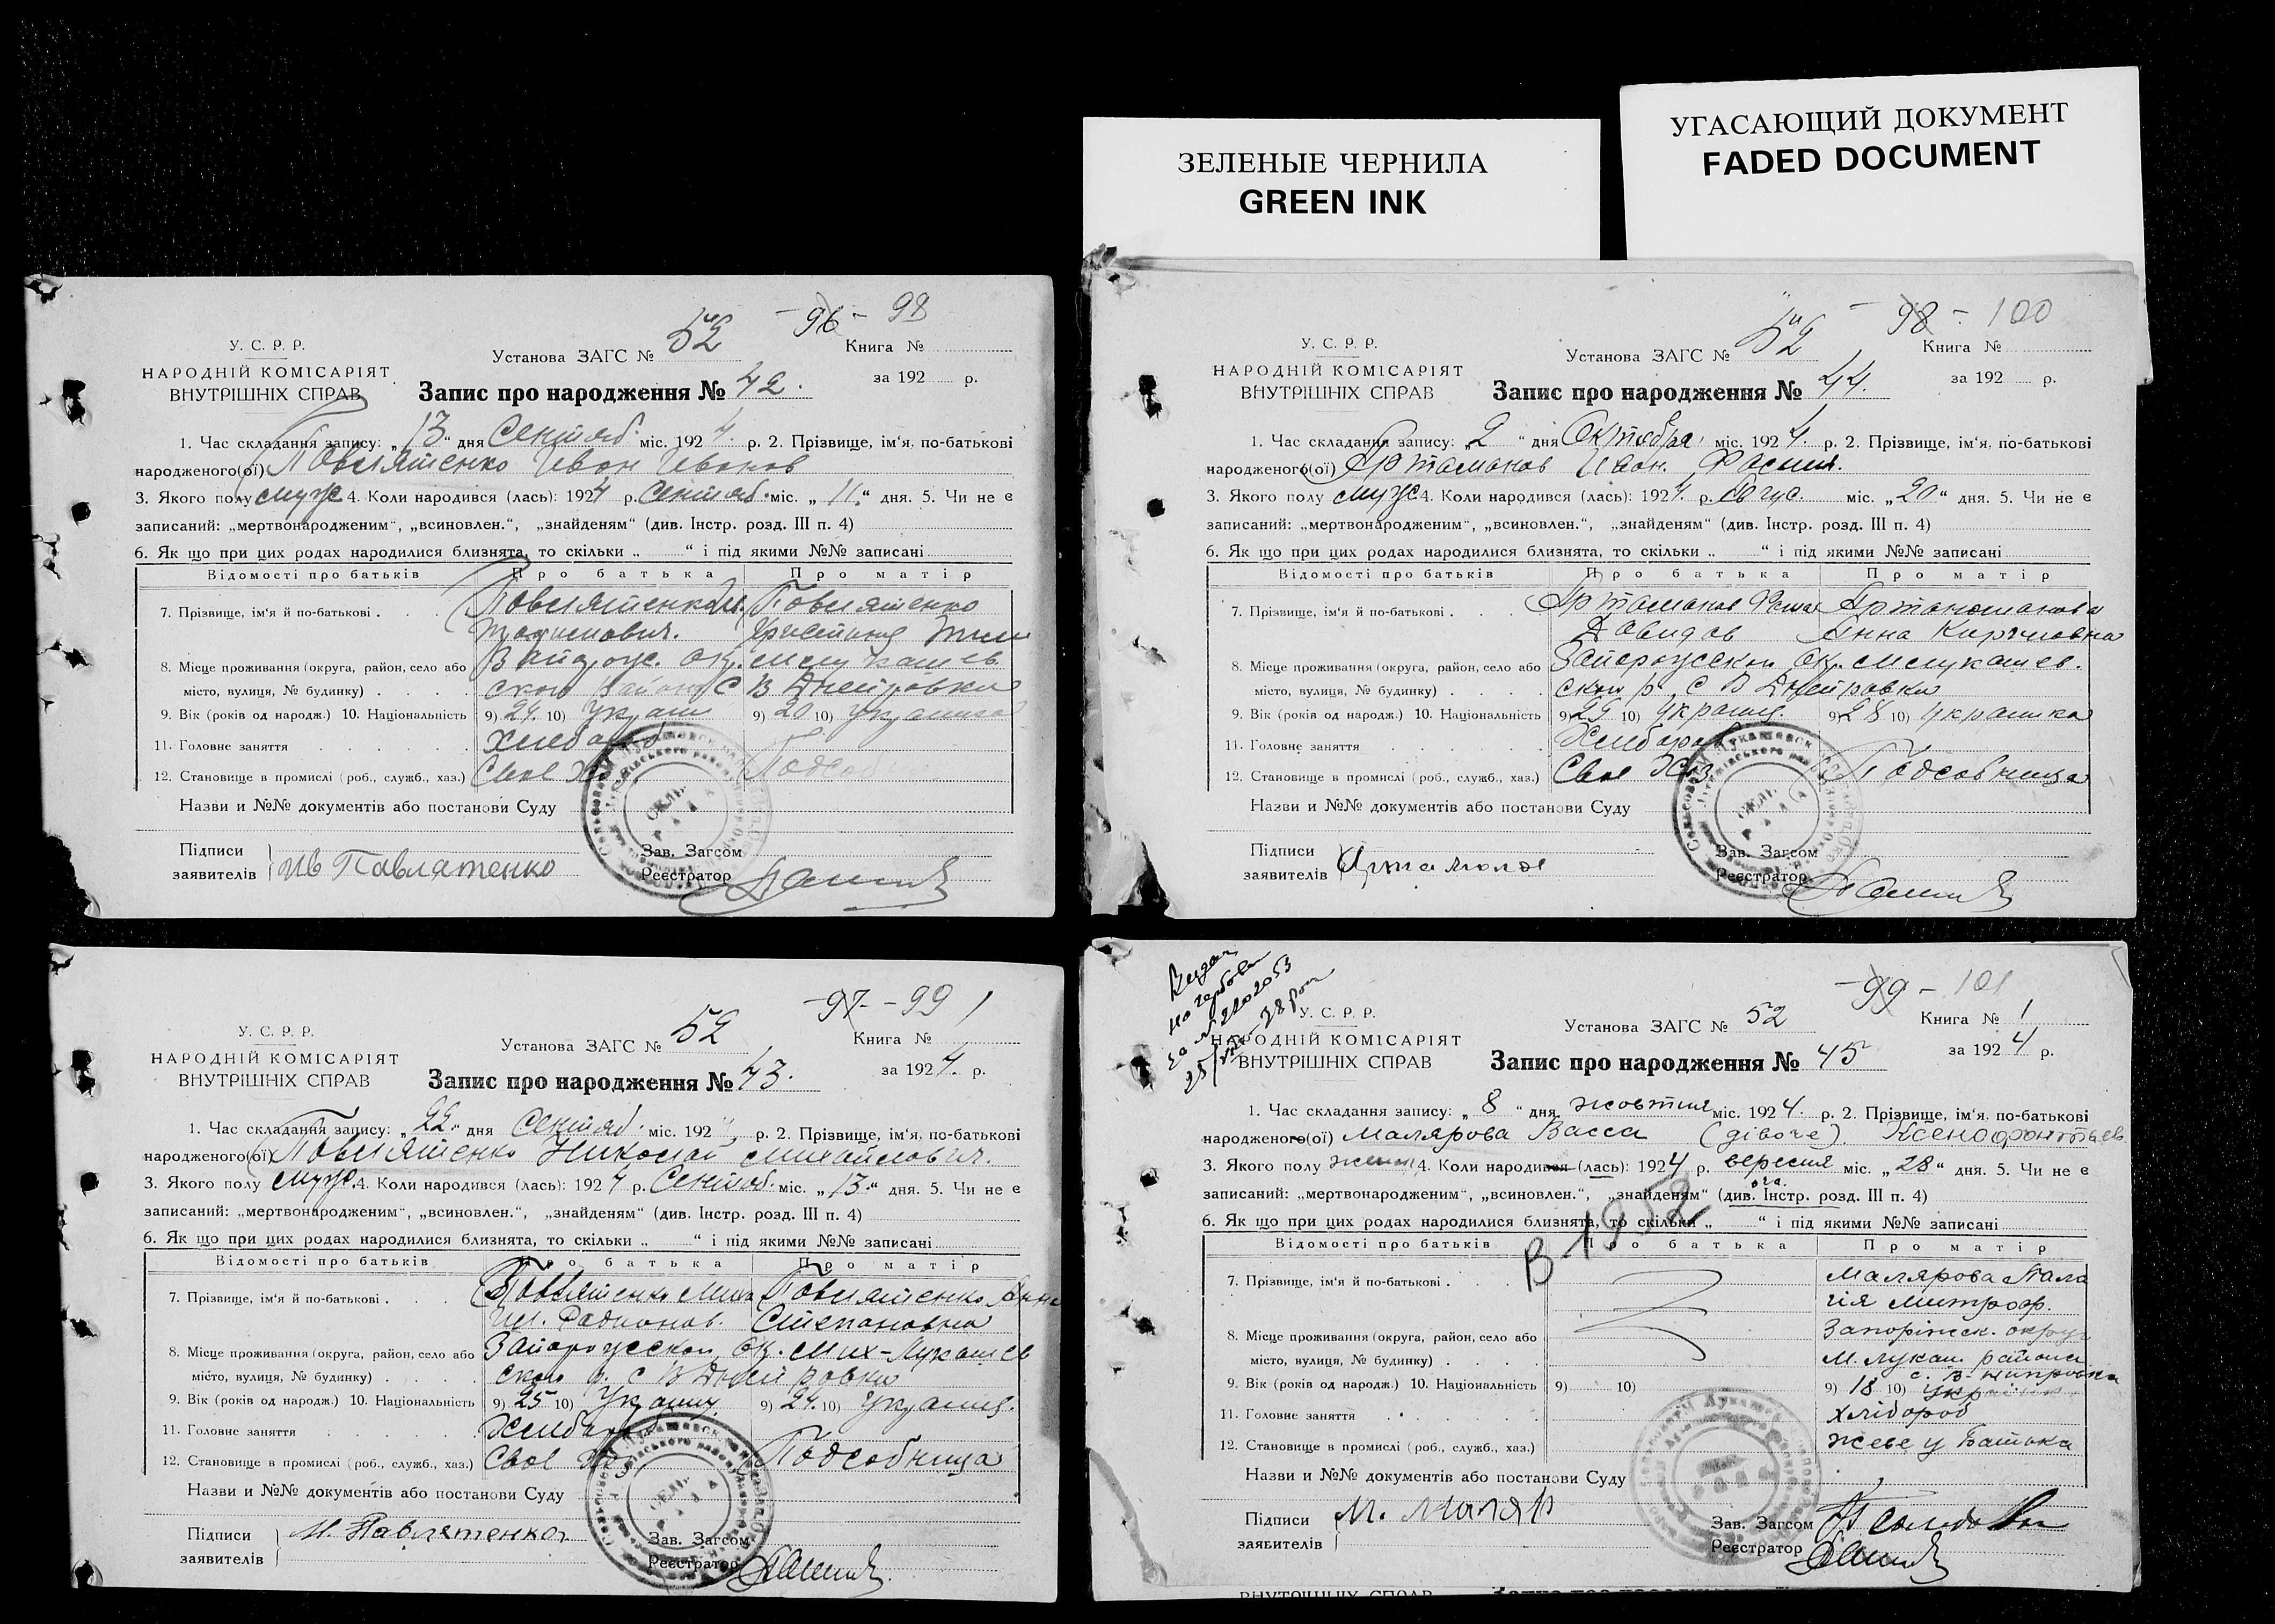 ЗЕЛЕНЫЕ ЧЕРНИЛА
GREEN INK
УГАСАЮЩИЙ ДОКУМЕНТ
FADED DOCUMENT
96 - 98
У. С. Р. Р.
НАРОДНІЙ КОМІСАРІЯТ
ВНУТРІШНІХ СПРАВ
Установа ЗАГС № 52
Книга №
Запис про народження № 42.
за 192 р.
1. Час складання запису: „13“ дня Сентяб. міс. 1924. р. 2. Прізвище, ім'я, по-батькові
народженого(ої) Повлятенко Иван Иванов
3. Якого полу муж 4. Коли народився (лась): 1924 р. Сентяб. міс. „11.“ дня. 5. Чи не є
записаний: „мертвонародженим“, „всиновлен.“, „знайденям“ (див. Інстр. розд. III п. 4)
6. Як що при цих родах народилися близнята, то скільки „ “ і під якими №№ записані
Відомості про батьків Про батька Про матір
7. Прізвище, ім'я й по-батькові . Повлятенко Повлятенко
8. Місце проживання (округа, район, село або
місто, вулиця, № будинку) ского района С В Днепровки
9. Вік (років од народж.) 10. Національність 9) 24. 10) Украин 9) 20 10)
11. Головне заняття Хлебороб
12. Становище в промислі (роб., служб., хаз.) Свое Хоз
Назви и №№ документів або постанови Суду
Підписи
заявителів Ив Павлятенко
Зав. Загсом
Реєстратор
98 - 100
У. С. Р. Р.
НАРОДНІЙ КОМІСАРІЯТ
ВНУТРІШНІХ СПРАВ
Установа ЗАГС № 52
Книга №
Запис про народження № 44.
за 192 р.
1. Час складання запису: „2“ дня Октября міс. 1924. р. 2. Прізвище, ім'я, по-батькові
народженого(ої) Артаманов Иван.
3. Якого полу муж 4. Коли народився (лась): 1924. р. міс. „20“ дня. 5. Чи не є
записаний: „мертвонародженим“, „всиновлен.“, „знайденям“ (див. Інстр. розд. III п. 4)
6. Як що при цих родах народилися близнята, то скільки „ “ і під якими №№ записані
Відомості про батьків Про батька Про матір
7. Прізвище, ім'я й по-батькові . Артаманов
Давидов Анна Кириловна
8. Місце проживання (округа, район, село або Запорожской Ок.
місто, вулиця, № будинку) ской р. С В Днепровки
9. Вік (років од народж.) 10. Національність 9) 29 10) Украинц. 9) 28 10) Украинка
11. Головне заняття Хлебороб
12. Становище в промислі (роб., служб., хаз.) Свое Хоз Подсобница
Назви и №№ документів або постанови Суду
Підписи
заявителів
Зав. Загсом
Реєстратор
97 - 99
У. С. Р. Р.
НАРОДНІЙ КОМІСАРІЯТ
ВНУТРІШНІХ СПРАВ
Установа ЗАГС № 52
Книга № 1
Запис про народження № 43.
за 1924. р.
1. Час складання запису: „22“ дня Сентяб. міс. 192 р. 2. Прізвище, ім'я, по-батькові
народженого(ої) Повлятенко Николай Михайлович.
3. Якого полу муж. 4. Коли народився (лась): 1924 р. Сентяб. міс. „13.“ дня. 5. Чи не є
записаний: „мертвонародженим“, „всиновлен.“, „знайденям“ (див. Інстр. розд. III п. 4)
6. Як що при цих родах народилися близнята, то скільки „ “ і під якими №№ записані
Відомості про батьків Про батька Про матір
7. Прізвище, ім'я й по-батькові . Повлятенко Миха Повлятенко Анна
ил. Радионов. Степановна
8. Місце проживання (округа, район, село або Запорожской Ок. Мих-Лукашев
місто, вулиця, № будинку) ского р. с В Днепровки
9. Вік (років од народж.) 10. Національність 9) 25 10) Украинц. 9) 24. 10) Украинц.
11. Головне заняття Хлебороб
12. Становище в промислі (роб., служб., хаз.) Свое Хоз Подсобница
Назви и №№ документів або постанови Суду
Підписи
заявителів М. Павлятенко
Зав. Загсом
Реєстратор
99 - 101
У. С. Р. Р.
НАРОДНІЙ КОМІСАРІЯТ
ВНУТРІШНІХ СПРАВ
Установа ЗАГС № 52
Книга № 1
Запис про народження № 45
за 1924 р.
1. Час складання запису: „8“ дня жовтня міс. 1924. р. 2. Прізвище, ім'я, по-батькові
народженого(ої) Малярова Васса (дівоче). Ксенофонтьев.
3. Якого полу 4. Коли народився (лась): 1924 р. вересня міс. „28“ дня. 5. Чи не є
записаний: „мертвонародженим“, „всиновлен.“, „знайденям“ (див. Інстр. розд. III п. 4)
6. Як що при цих родах народилися близнята, то скільки „ “ і під якими №№ записані
В-1952
Відомості про батьків Про батька Про матір
7. Прізвище, ім'я й по-батькові . Малярова Пала
гія Митроф.
8. Місце проживання (округа, район, село або Запоріжск. округ
місто, вулиця, № будинку) М. Лукаш. района
9. Вік (років од народж.) 10. Національність 9) 10) 9) 18 10)
11. Головне заняття хлібороб
12. Становище в промислі (роб., служб., хаз.) живе у батька
Назви и №№ документів або постанови Суду
Підписи
заявителів М. Маляр
Зав. Загсом
Реєстратор